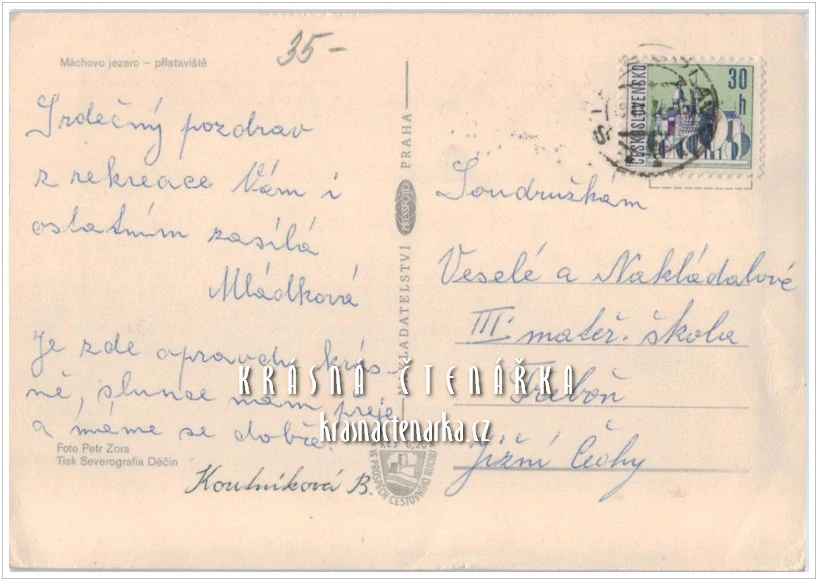 35-
Máchovo jezero – přístaviště
Srdečný pozdrav
z rekreace Vám i
ostatním zasílá
Mládková
Je zde opravdu krás-
ně, slunce nám přeje
a máme se dobře.
Foto Petr Zora
Tisk Severografia Děčín
Koutníková B.
NAKLADATELSTVÍ PRESSFOTO PRAHA
ČESKOSLOVENSKO
30 h
Soudružkám
Veselé a Nakládalové
III. mateř. škola
Třeboň
Jižní Čechy
KRÁSNÁ ČTENÁŘKA
krasnactenarka.cz
Kčs 0,20
VE PROSPĚCH CESTOVNÍHO RUCHU